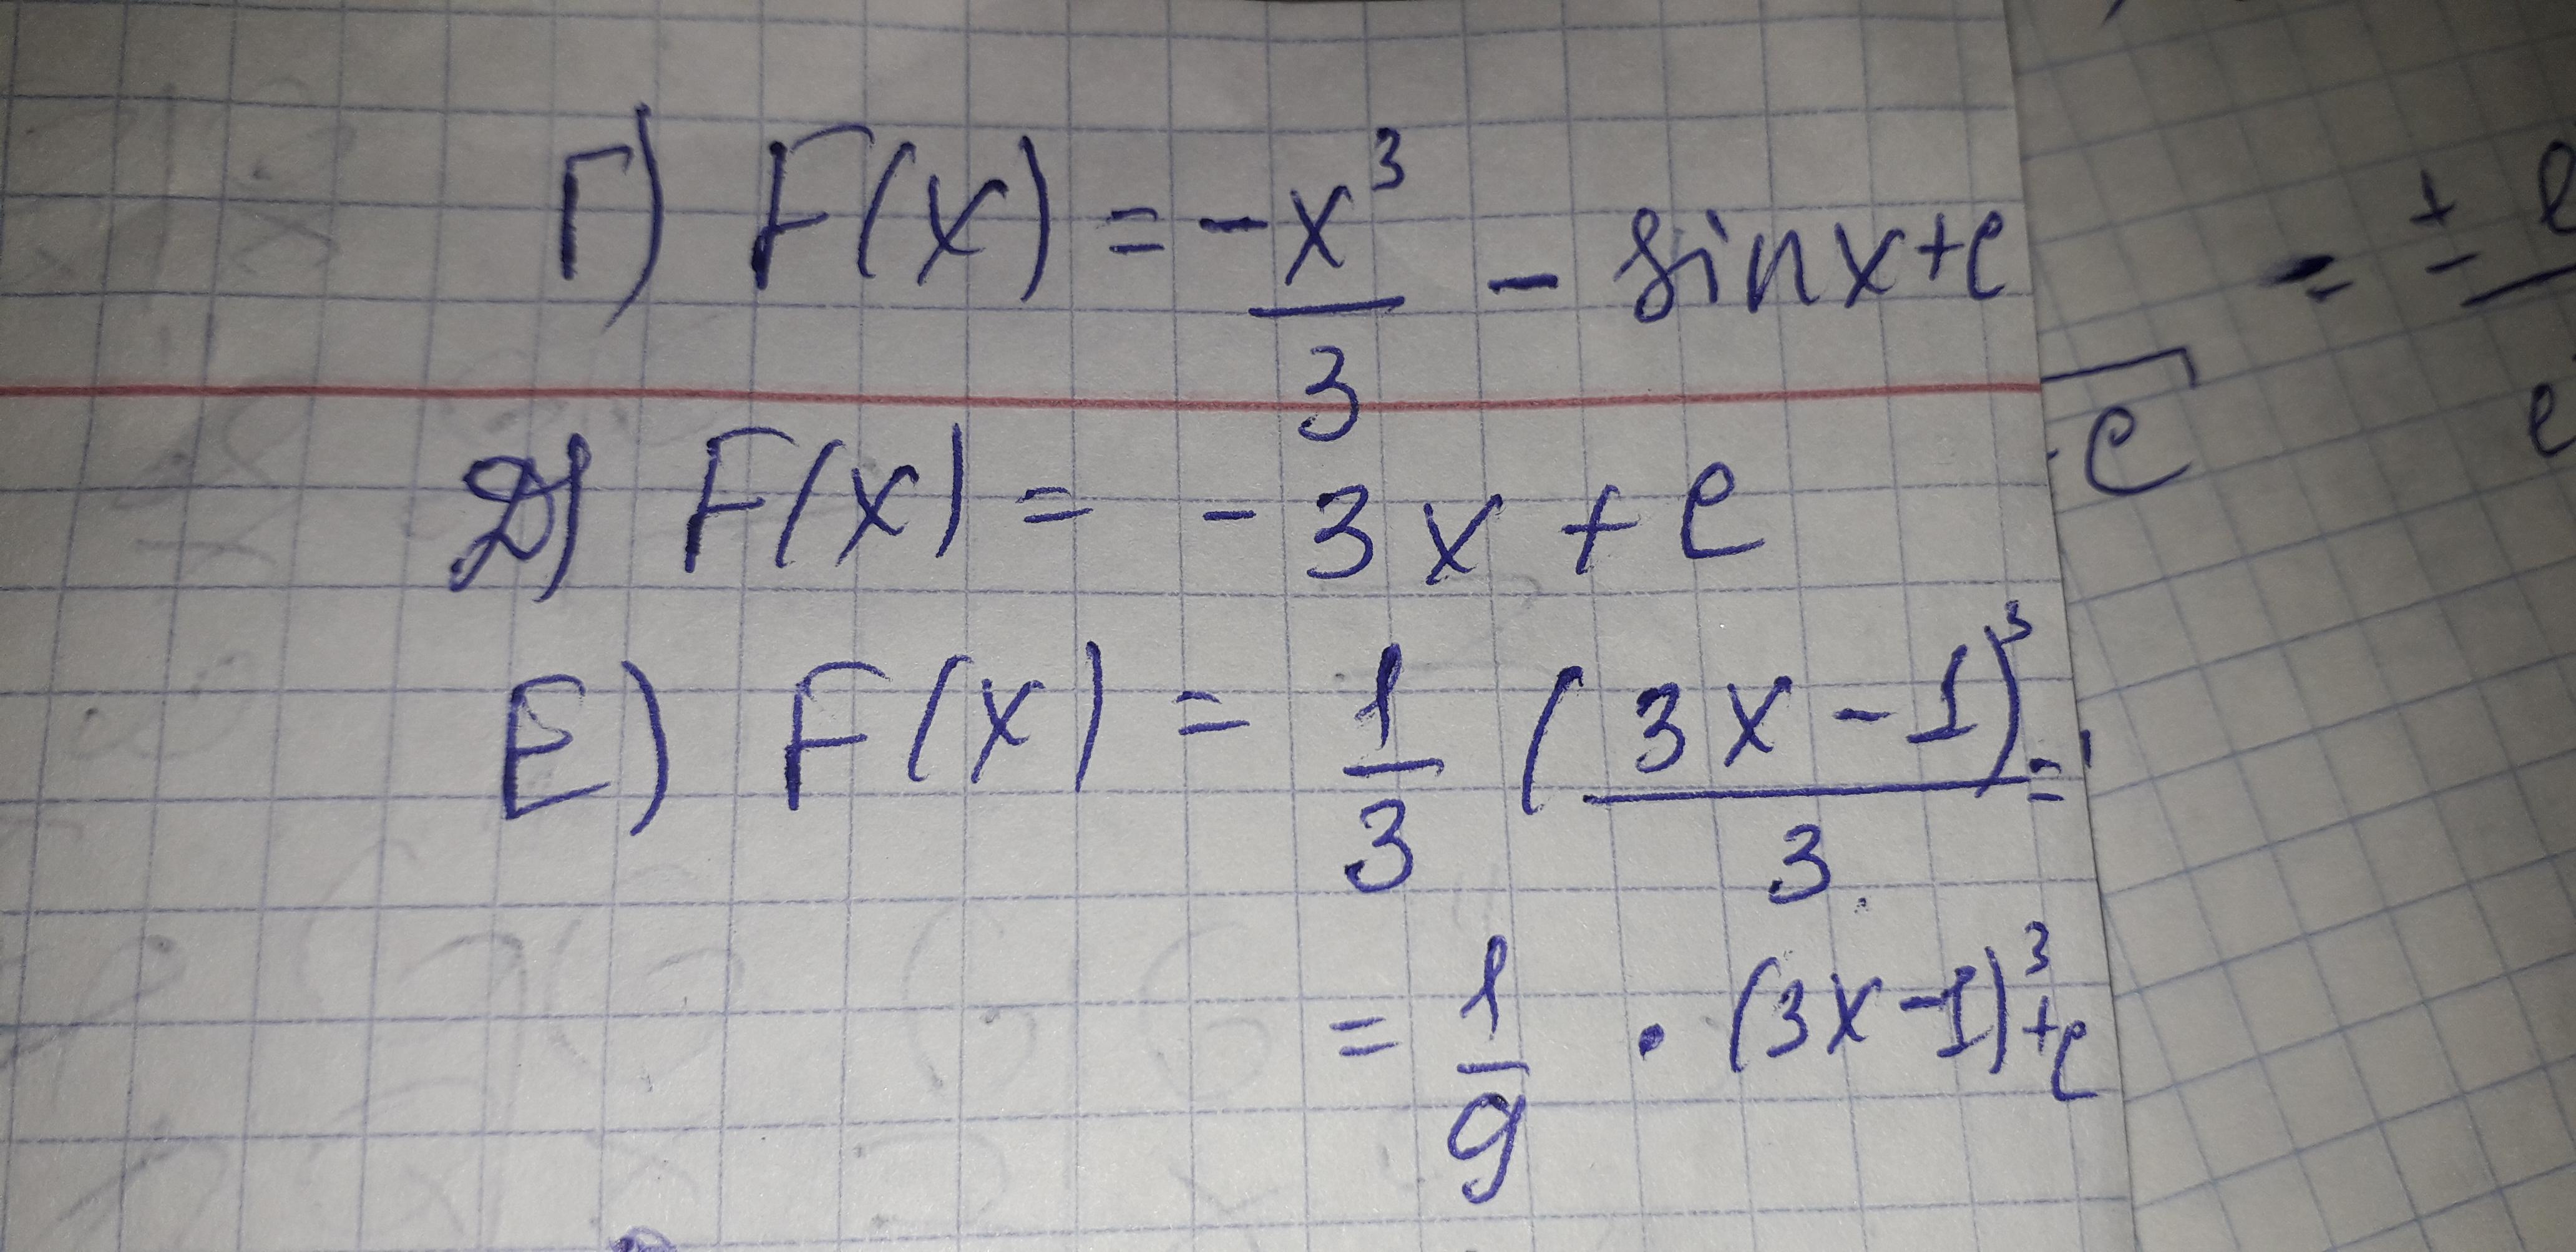 Г) F(x) = -x³/3 - sinx+c
Д) F(x) = -3x + c
Е) F(x) = 1/3 (3x-1)³/3 =
= 1/9 · (3x-1)³+c
= ±